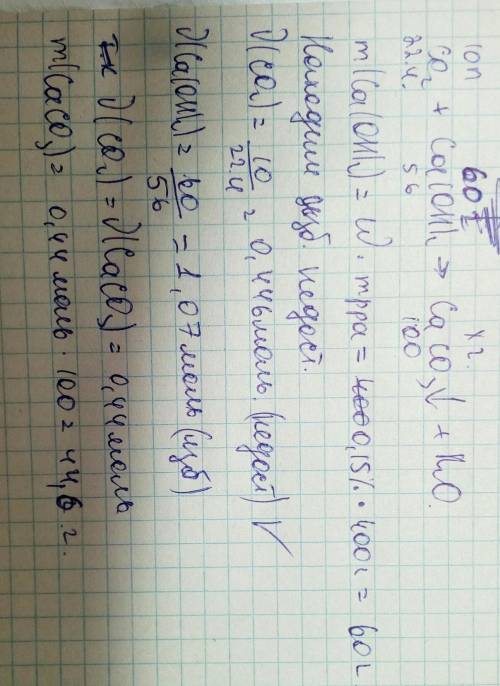 10л 60г х г.
CO₂ + Ca(OH)₂ → CaCO₃↓ + H₂O.
22.4. 56 100
m(Ca(OH)₂ = W · mрра = 0,15% · 400г = 60г
Находим изб. недост.
ν(CO₂) = 10/22.4 = 0,446моль. (недост) √
ν(Ca(OH)₂ = 60/56 = 1,07моль (изб)
тк ν(CO₂) = ν(CaCO₃) = 0,44моль
m(CaCO₃) = 0,44моль · 100 = 44,6 г.